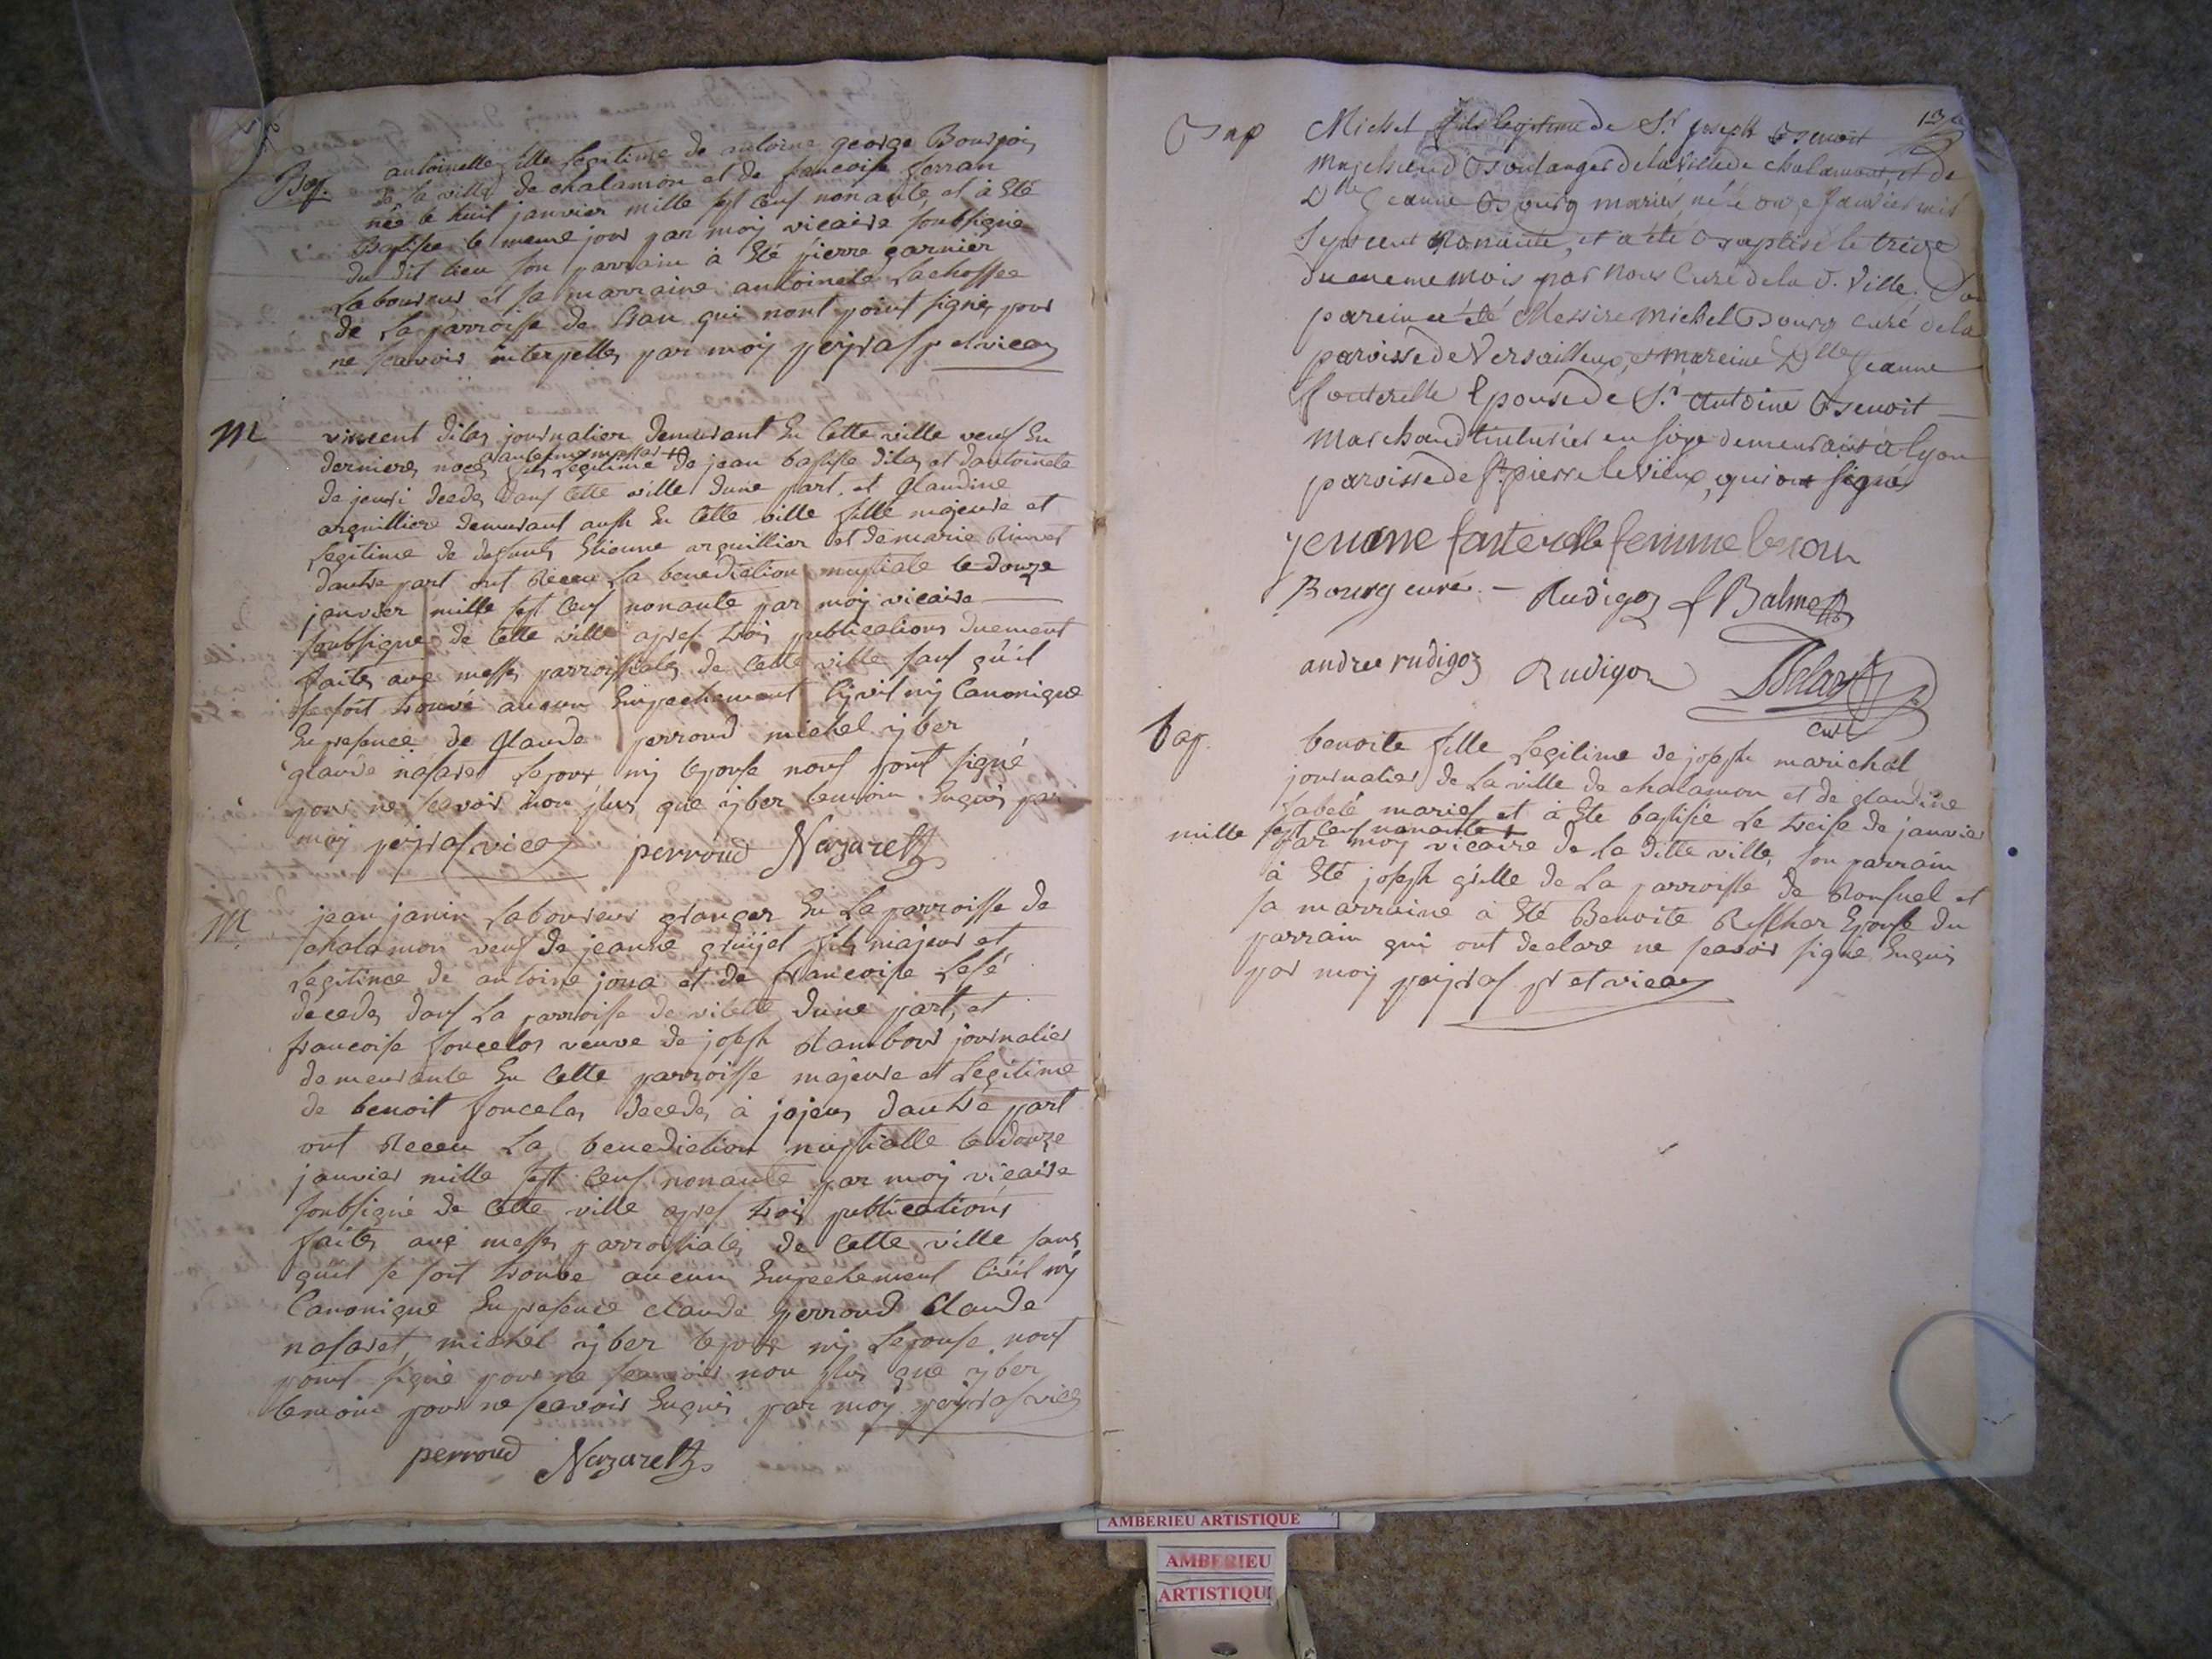 Bap. antoinelle fille legitime de antoine george Bourjois
de la ville de chalamon et de francoise ferran
née le huit janvier mille sept cens nonante, et à Eté
Baptisée le meme jour par moij vicaire soubsigné
du dit lieu son parrain à Eté pierre garnier
laboureur et sa marraine antoinete lachossee
de la parroisse de Bran qui nont point signé, pour
ne scavoir interpellés par moij peijras p et vicair
M vincent dilas journalier demeurant En Cette ville veuf En
dernieres noces
fils legitime de jean baptiste dilas et dantoinete
de jeuri decedes dans Cette ville dune part, et glaudine
arguilliere demeurant aussi En Cette ville fille majeure et
legitime de defunts Etienne arguillier et de marie
dautre part ont Receu la benediction nuptiale le douze
janvier mille sept cens nonante par moij vicaire
soubsigné de Cette ville apres trois publications duement
faites aux messes parroissiales de Cette ville sans qu'il
se soit trouvé aucun Empechement Civil nij Canonique
En presence de glaude perroud michel ijber
glaude nasaret lepoux nij lepouse nont point signé
pour ne scavoir non plus que ijber temoin Enquis par
moij peijras vicair perroud Nazareth
M jean janin laboureur granger En la parroisse de
chalamon veuf de jeanne gruijet fils majeur et
legitime de antoine joua et de francoise lesé
decedes dans la parroisse de vilette dune part, et
francoise foncelas veuve de joseph rambour journalier
demeurante En Cette parroisse majeure et legitime
de benoit foncelas decedes à jojeux dautre part
ont Receu la benediction nuptialle le douze
janvier mille sept Cens nonante par moij vicaire
soubsigné de Cette ville apres trois publications
faites aux messes parroissiales de Cette ville sans
quil se soit trouvé aucun Empechement Civil nij
Canonique En presence claude perroud Claude
nasaret, michel ijber lepoux nij lepouse nont
point signé pour ne scavoir non plus que ijber
temoin pour ne scavoir Enquis par moij peijras vicair
perroud Nazareth
13
Bap Michel fils legitime de Sr. joseph Benoit
Marchand Boulanger de la Ville de chalamont, et de
Dlle Jeanne Bourg mariés, né le onze Janvier mil
Sept cent Nonante, et a été Baptisé le treize
du meme mois par Nous Curé de la d. Ville. Son
parein a été Messire Michel Bourg curé de la
paroisse de Versailleux, et mareine Dlle Jeanne
fonterelle Epouse de Sr. Antoine Benoit
Marchand tinturier en soye demeurant à lyon
paroisse de St. pierre le Vieux, qui ont signé
jeanne fonterelle femme benoit
Bourg curé. Rudigoz f Balme
andree rudigoz Rudigoz
curé
bap. benoite fille legitime de joseph marichal
journalier de la ville de chalamon et de claudine
maries et à Ete baptisée le treise de janvier
mille sept cens nonante
par moij vicaire de la ditte ville, son parrain
à Eté joseph grille de la parroisse de Ronsuel et
sa marraine à Eté Benoite Epouse du
parrain qui ont declaré ne scavoir signé Enquis
par moij peijras pr et vicair
AMBERIEU ARTISTIQUE
AMBERIEU
ARTISTIQU